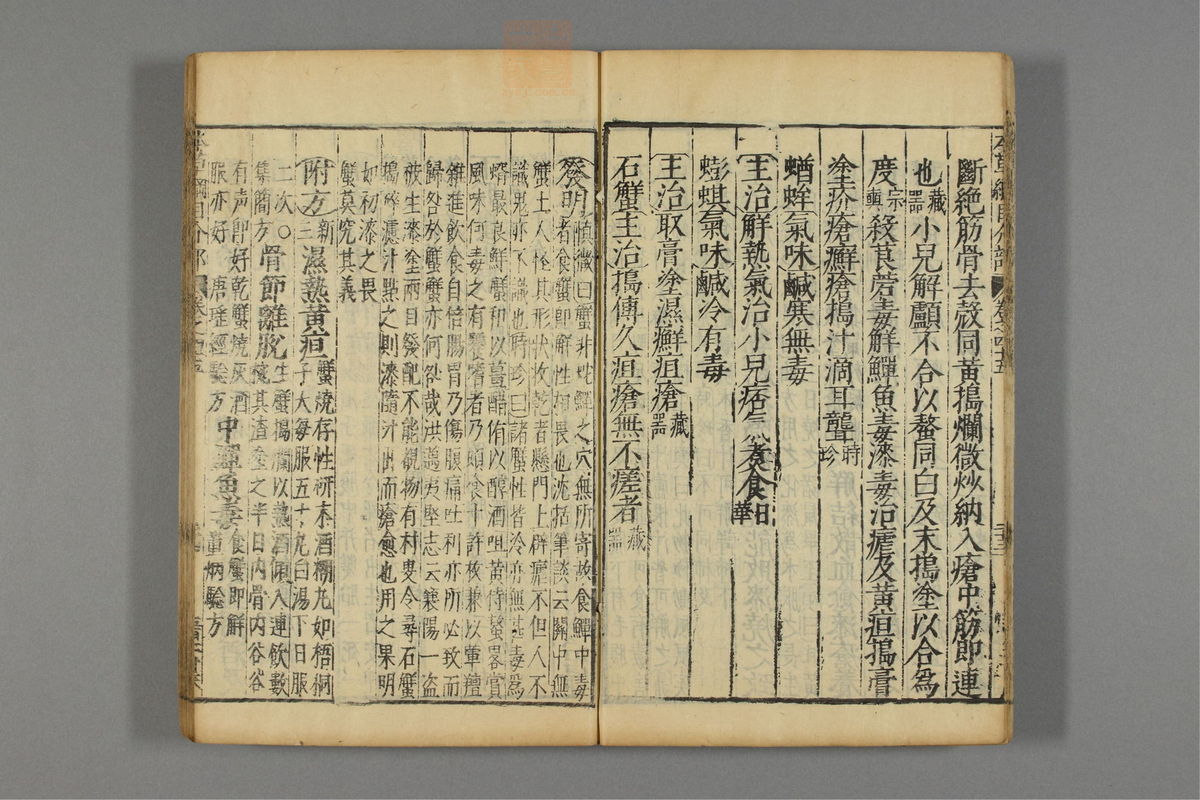 斷絕筋骨去殼同黃搗爛微炒納入瘡中筋即連
也藏器小兒解顱不合以螯同白及末搗塗以合爲
度宗奭殺莨菪毒解鱓魚毒漆毒治瘧及黃疸搗膏
塗疥瘡癬瘡搗汁滴耳聾時珍
蝤蛑氣味鹹寒無毒
主治解熱氣治小兒痞氣煮食日華
蟛蜞氣味鹹冷有毒
主治取膏塗濕癬疽瘡藏器
石蟹主治搗傅久疽瘡無不瘥者藏器
發明慎微曰蟹非蛇鱓之穴無所寄故食鱓中毒
者食蟹即解性相畏也沈括筆談云關中無
蟹土人怪其形狀收乾者懸門上辟瘧不但人不
識鬼亦不識也時珍曰諸蟹性皆冷亦無甚毒爲
蝑最良鮮蟹和以薑醋侑以醇酒咀黃持螯略賞
風味何毒之有饕嗜者乃頓食十許枚兼以葷羶
雜進飲食自倍腸胃乃傷腹痛吐利亦所必致而
歸咎於蟹蟹亦何咎哉洪邁夷堅志云襄陽一盜
被生漆塗兩目發配不能覩物有村叟令尋石蟹
搗碎濾汁點之則漆隨汁出而瘡愈也用之果明
如初漆之畏
蟹莫究其義
附方新三濕熱黃疸蟹燒存性研末酒糊丸如梧桐
子大每服五十丸白湯下日服
二次○集簡方骨節離脫生蟹搗爛以熱酒傾入連飲數
椀其渣塗之半日內骨內谷谷
有声即好乾蟹燒灰酒
服亦好唐瑶經驗方中鱓魚毒食蟹即解
董炳驗方